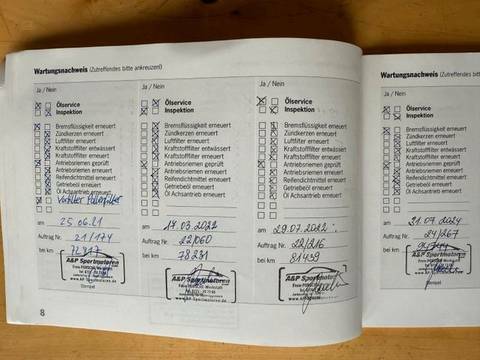 Wartungsnachweis (Zutreffendes bitte ankreuzen!)
Ja / Nein
Ölservice
Inspektion
Bremsflüssigkeit erneuert
Zündkerzen erneuert
Luftfilter erneuert
Kraftstofffilter entwässert
Kraftstofffilter erneuert
Antriebsriemen geprüft
Antriebsriemen erneuert
Reifendichtmittel erneuert
Getriebeöl erneuert
Öl Achsantrieb erneuert
am 25.06.21
Auftrag Nr. 21/174
bei km
A&P Sportmotoren
www.A&P-Sportmotoren.de
Stempel
8
Ja / Nein
Ölservice
Inspektion
Bremsflüssigkeit erneuert
Zündkerzen erneuert
Luftfilter erneuert
Kraftstofffilter entwässert
Kraftstofffilter erneuert
Antriebsriemen geprüft
Antriebsriemen erneuert
Reifendichtmittel erneuert
Getriebeöl erneuert
Öl Achsantrieb erneuert
am 17.03.2022
Auftrag Nr. 22/060
bei km 78231
A&P Sportmotoren
Wartungsnachweis (Zutreffendes bitte ankreuzen!)
Ja / Nein
Ölservice
Inspektion
Bremsflüssigkeit erneuert
Zündkerzen erneuert
Luftfilter erneuert
Kraftstofffilter entwässert
Kraftstofffilter erneuert
Antriebsriemen geprüft
Antriebsriemen erneuert
Reifendichtmittel erneuert
Getriebeöl erneuert
Öl Achsantrieb erneuert
am 29.07.2022
Auftrag Nr. 22/216
bei km 81439
A&P Sportmotoren
Wartungsnachweis (Zutreffendes
Ja / Nein
Ölservice
Inspektion
Bremsflüssigkeit
Zündkerzen erneuert
Luftfilter erneuert
Kraftstofffilter
Kraftstofffilter
Antriebsriemen
Antriebsriemen
Reifendichtmittel
Getriebeöl erneuert
Öl Achsantrieb
am
Auftrag Nr. 24/267
bei km